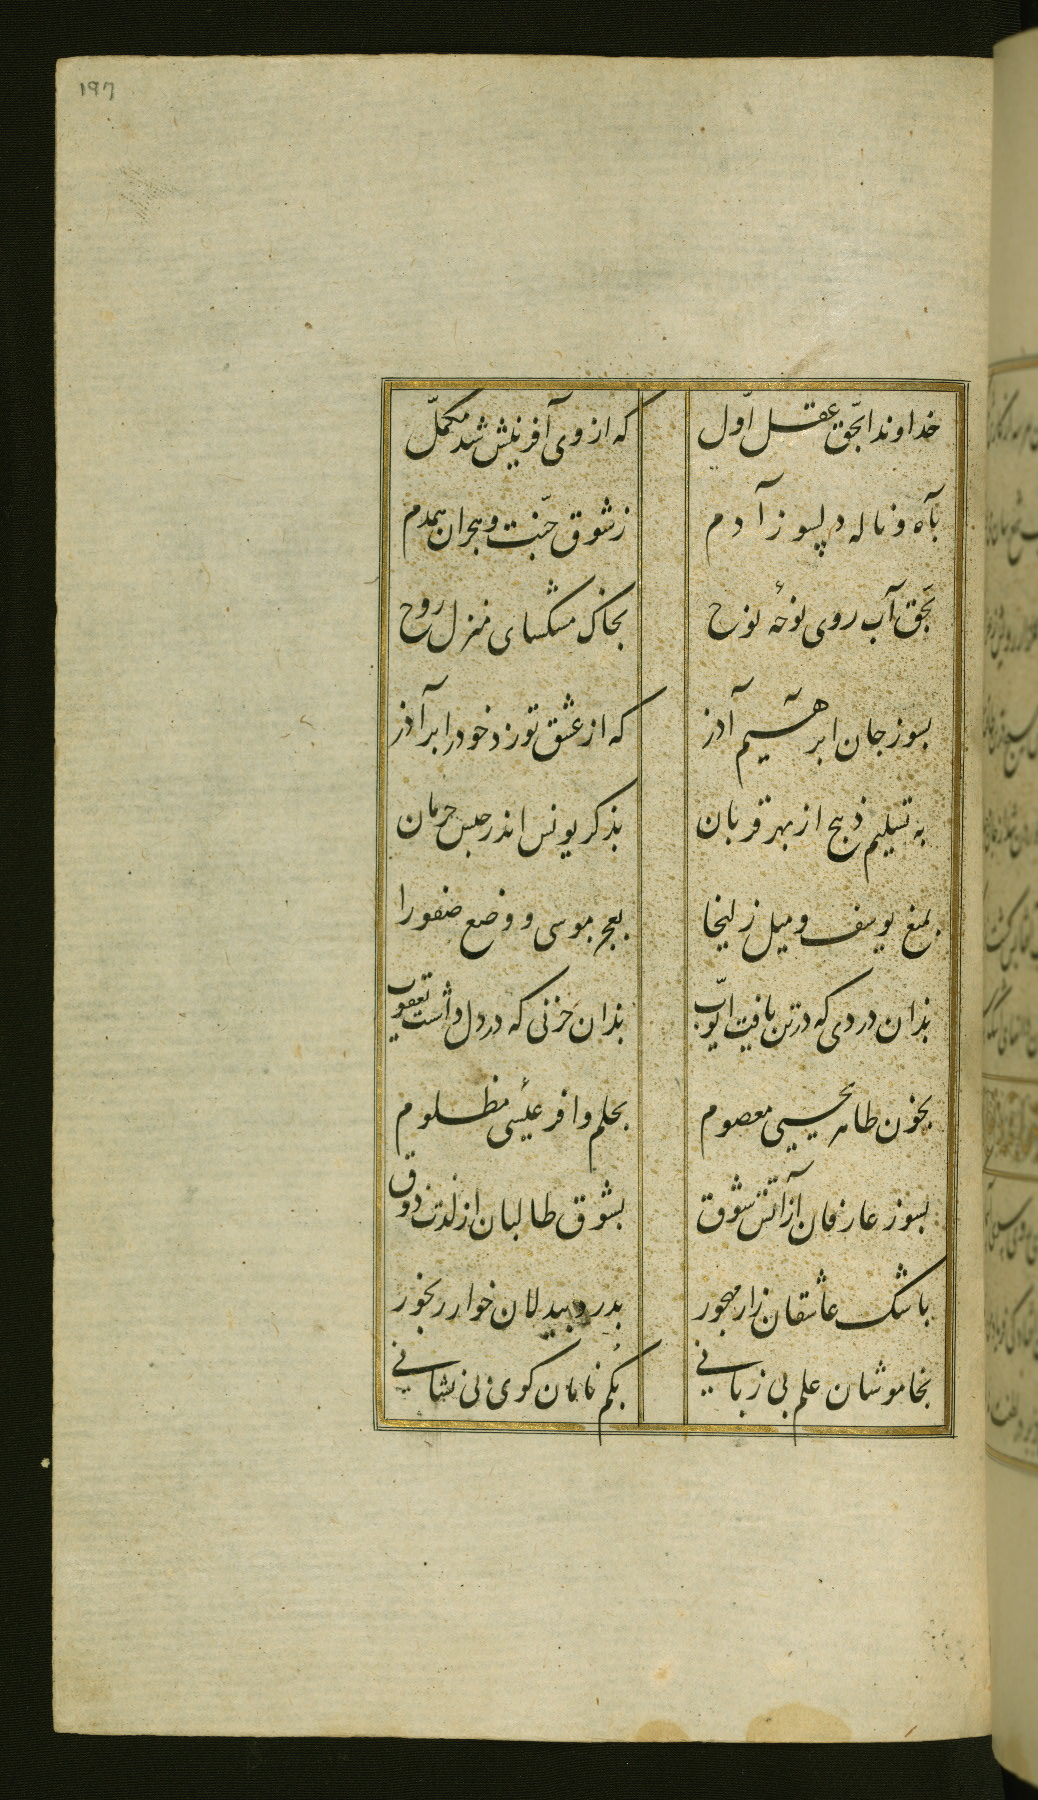 ۱۹۷
خداوندا بحق عقل اوّل که از وی آفرینش شد مکمّل
بآه و ناله دلسوز آدم ز شوق جنّت و هجران همدم
بحق آب روی نوحهٔ نوح بخاک مشکسای منزل روح
بسوز جان ابرهیم آذر که از عشق تو زد خود را بر آذر
به تسلیم ذبیح از بهر قربان بذکر یونس اندر حبس حرمان
یوسف و میل زلیخا موسی و وضع صفورا
بذان دردی که در تن یافت ایّوب بذان حزنی که در دل داشت یعقوب
بخون طاهر یحیی معصوم بحلم وافر عیسی مظلوم
بسوز عارفان از آتش شوق بشوق طالبان از لذت ذوق
باشک عاشقان زار مهجور بدرد بیدلان خوار رنجور
بخاموشان علم بی زبانی کوی بی نشانی